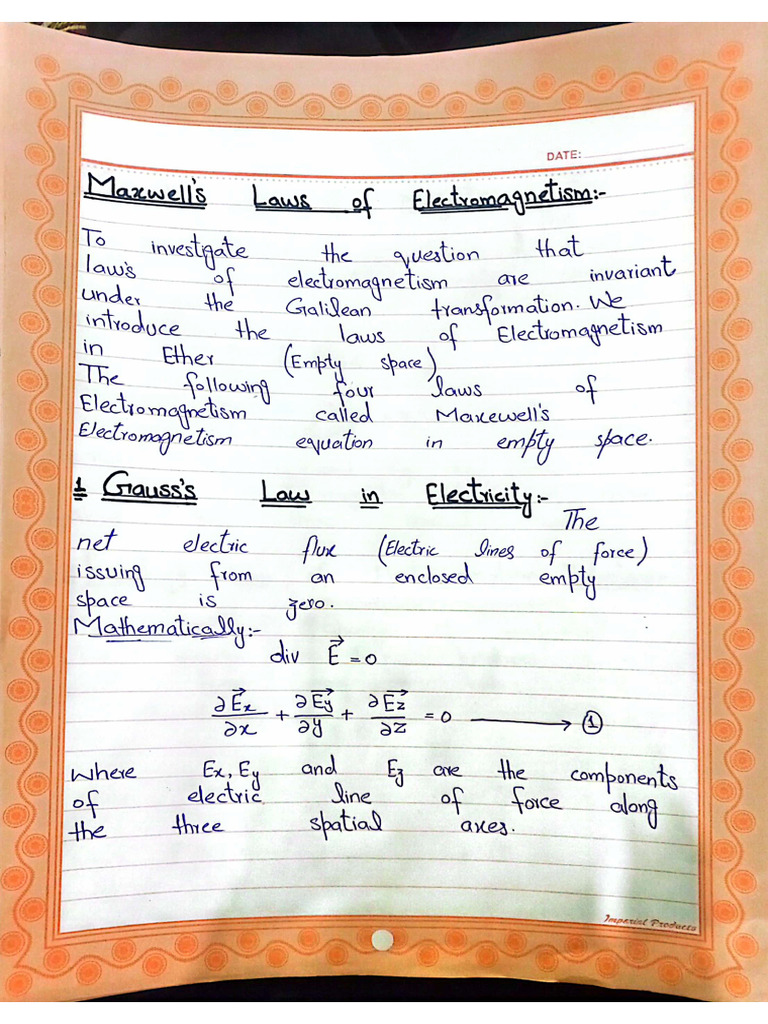 DATE:
Maxwell's Laws of Electromagnetism:-
To investigate the question that
law's of electromagnetism are invariant
under the Galilean transformation. We
introduce the laws of Electromagnetism
in Ether (Empty space)
The following four laws of
Electromagnetism called Maxewell's
Electromagnetism equation in empty space.
1 Gauss's Law in Electricity:-
The
net electric flux (Electric lines of force)
issuing from an enclosed empty
space is zero.
Mathematically:-
div E⃗ = 0
∂E⃗x/∂x + ∂E⃗y/∂y + ∂E⃗z/∂z = 0 ⟶ ①
Where Ex, Ey and Ez are the components
of electric line of force along
the three spatial axes.
Imperial Products